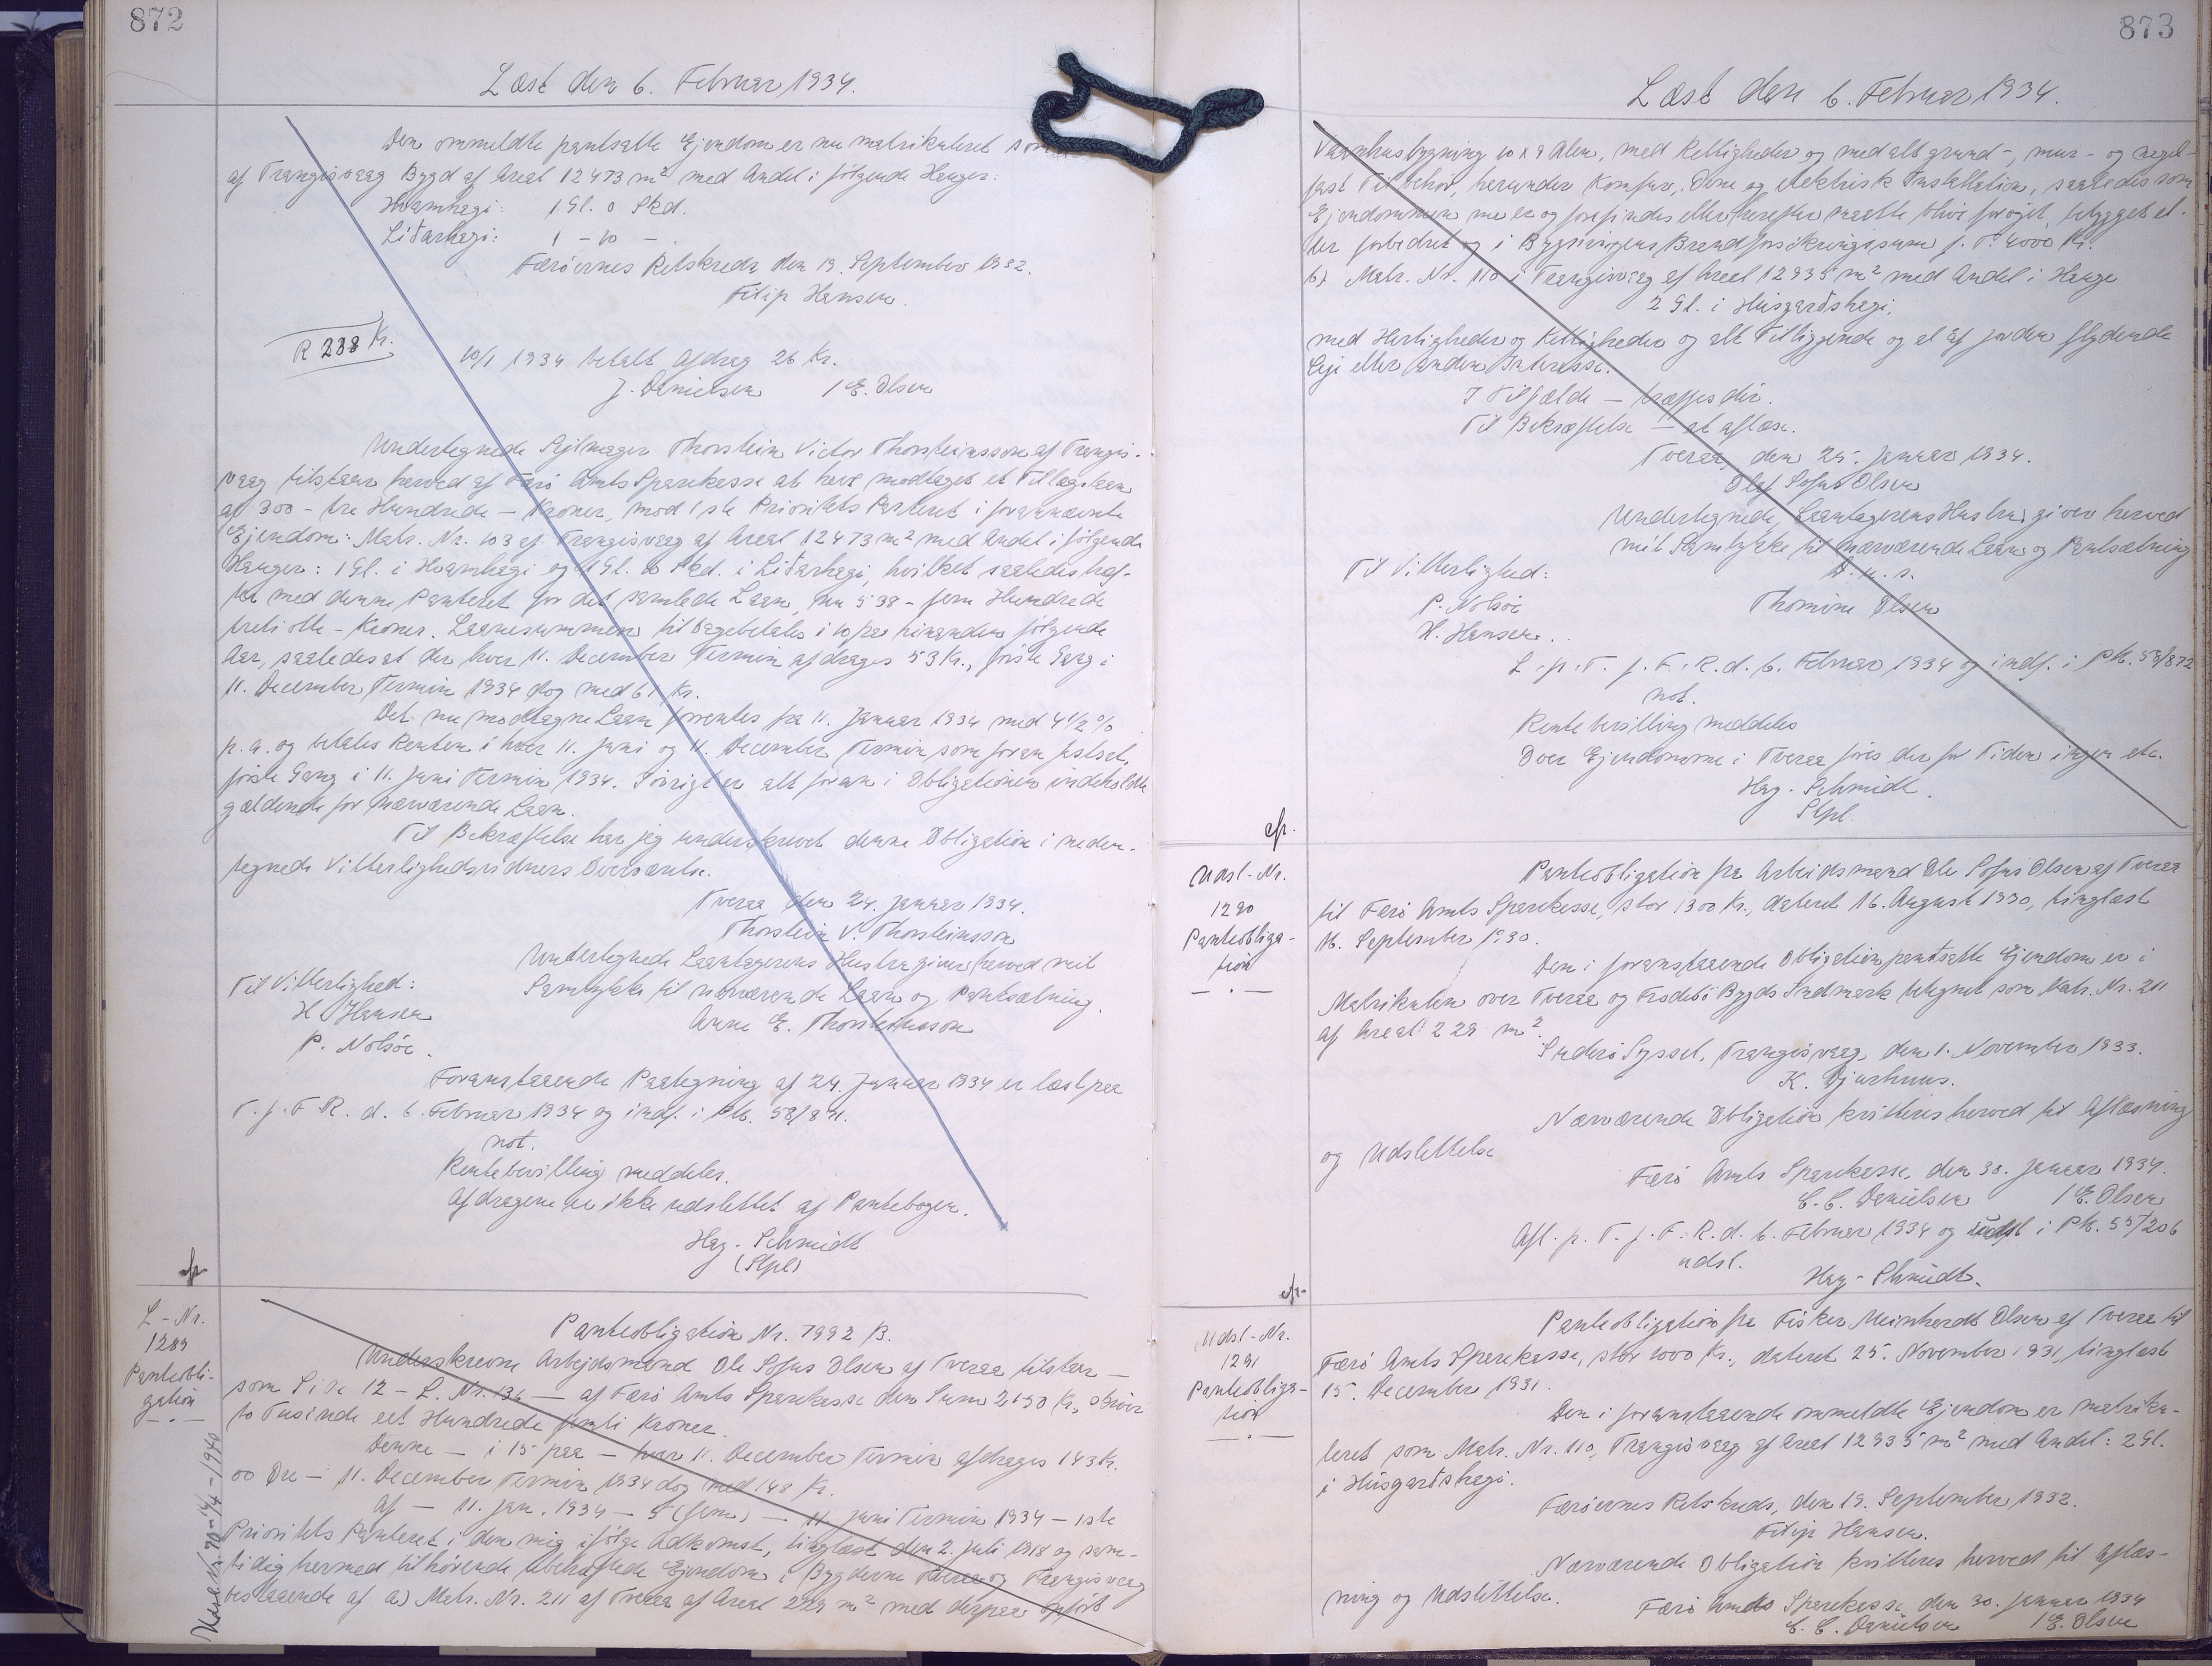 872
Læst den 6. Februar 1934.
Den ommeldte pantsatte Ejendom er nu matrikuleret som
af Trangisvaag Bygd af Areal 12473 m² med Andel i følgende Hauger:
Hvamhagi: 1 Gl. 0 Skd.
Liðarhagi: 1 - 10 -.
Færøernes Retskreds den 19. September 1932.
Filip Hansen.
R 238 Kr.
10/1 1934 betalt Afdrag 26 Kr.
J. Danielsen / E. Olsen
Undertegnede Sejlmager Thorstein Victor Thorsteinsson af Trangis-
vaag tilstaar herved af Færø Amts Sparekasse at have modtaget et Tillægslaan
af 300 - tre Hundrede - Kroner, mod 1ste Prioritets Panteret i forannævnte
Ejendom: Matr. Nr. 103 af Trangisvaag af Areal 12473 m² med Andel i følgende
Hauger: 1 Gl. i Hvamhagi og 1 Gl. 10 Skd. i Liðarhagi, hvilket saaledes hæf-
ter med denne Panteret for det samlede Laan, nu 538 - fem Hundrede
treti otte - Kroner. Laanesummen tilbagebetales i 10 paa hinanden følgende
Aar, saaledes at der hver 11. December Termin afdrages 53 Kr., første Gang i
11. December Termin 1934 dog med 61 Kr.
Det nu modtagne Laan forrentes fra 11. Januar 1934 med 4 1/2 %
p. a. og betales Renten i hver 11. Juni og 11. December Termin som foran fastsat,
første Gang i 11. Juni Termin 1934. Iøvrigt er alt foran i Obligationen indeholdte
gældende for nærværende Laan.
Til Bekræftelse har jeg underskrevet denne Obligation i neden-
tegnede Vitterlighedsvidners Overværelse.
Tveraa den 24. Januar 1934.
Thorstein V. Thorsteinsson
Undertegnede Laantagerens Hustru giver herved mit
Til Vitterlighed: Samtykke til nærværende Laan og Pantsætning.
H. Hansen Anne E. Thorsteinsson
P. Nolsöe.
Foranstaaende Paategning af 24. Januar 1934 er læst paa
T. f. F. R. d. 6. Februar 1934 og indf. i Pb. 58/871.
not.
Rentebevilling meddeles.
Afdragene er ikke udslettet af Pantebogen.
Hag. Schmidt
(Stpl)
cfr.
L - Nr.
1289
Panteobli-
gation
Pantobligation Nr. 7992 B.
Underskrevne Arbejdsmand Ole Sofus Olsen af Tveraa tilstaar -
som Side 12 - L. Nr. 136 - af Færø Amts Sparekasse den Sum 2150 Kr., skriver
to Tusinde eet Hundrede femti Kroner.
Denne - i 15 paa - hver 11. December Termin afdrages 143 Kr.
00 Øre - 11. December Termin 1934 dog med 148 Kr.
Af - 11. Jan. 1934 - 5 (fem) - 11. Juni Termin 1934 - 1ste
Prioritets Panteret i den mig ifølge Adkomst, tinglæst den 2. Juli 1918 og sam-
tidig hermed tilhørende ubehæftede Ejendom i Bygderne Tveraa og Trangisvaag
bestaaende af a) Matr. Nr. 211 af Tveraa af Areal 229 m² med derpaa opført
873
Læst den 6. Februar 1934.
Vaanhusbygning 10 x 9 Alen, med Rettigheder og med alt grund-, mur- og nagel-
fast Tilbehör, herunder Komfur, Ovne og elektrisk Installation, saaledes som
Ejendommen nu er og forefindes eller herefter maatte blive forøget, bebygget el-
ler forbedret og i Bygningens Brandforsikringssum p. T. 4000 Kr.
b) Matr. Nr. 110 i Trangisvaag af Areal 12935 m² med Andel i Hauge
2 Gl. i Húsgarðshagi.
med Herligheder og Rettigheder og alt Tilliggende og al af Jorden flydende
Leje eller anden Interesse.
I Tilfælde - træffes dér.
Til Bekræftelse - at aflæse.
Tveraa, den 25. Januar 1934.
Ole Sofus Olsen
Undertegnede, Laantagerens Hustru, giver herved
mit Samtykke til nærværende Laan og Pantsætning
Til Vitterlighed: D. u. s.
P. Nolsöe Thomine Olsen
H. Hansen.
L. p. T. f. F. R. d. 6. Februar 1934 og indf. i Pb. 58/872
not.
Rentebevilling meddeles
Over Ejendomme i Tveraa føres der for Tiden ingen etc.
Hag. Schmidt.
Stpl.
cfr.
Udsl-Nr.
1290
Panteobliga-
tion
Panteobligation fra Arbeidsmand Ole Sofus Olsen af Tveraa
til Færø Amts Sparekasse, stor 1300 Kr., dateret 16. August 1930, tinglæst
16. September 1930.
Den i foranstaaende Obligation pantsatte Ejendom er i
Matrikulen over Tveraa og Froðebö Bygds Indmark betegnet som Matr. Nr. 211
af Areal 229 m².
Suderø Syssel, Trangisvaag, den 1. November 1933.
K. Djurhuus.
Nærværende Obligation kvitteres herved til Aflæsning
og Udslettelse
Færø Amts Sparekasse, den 30. Januar 1934.
C. C. Danielsen / E. Olsen
Afl. p. T. f. F. R. d. 6. Februar 1934 og udsl i Pb. 55/206
udsl.
Hag. Schmidt.
cfr.
Udsl-Nr.
1291
Panteobliga-
tion
Panteobligation fra Fisker Meinhardt Olsen af Tveraa til
Færø Amts Sparekasse, stor 1000 Kr., dateret 25. November 1931, tinglæst
15. December 1931.
Den i foranstaaende ommeldte Ejendom er matriku-
leret som Matr. Nr. 110, Trangisvaag af Areal 12935 m² med Andel: 2 Gl.
i Húsgarðshagi.
Færøernes Retskreds, den 19. September 1932.
Filip Hansen.
Nærværende Obligation kvitteres herved til Aflæs-
ning og Udslettelse.
Færø Amts Sparekasse, den 30. Januar 1934
C. C. Danielsen / E. Olsen